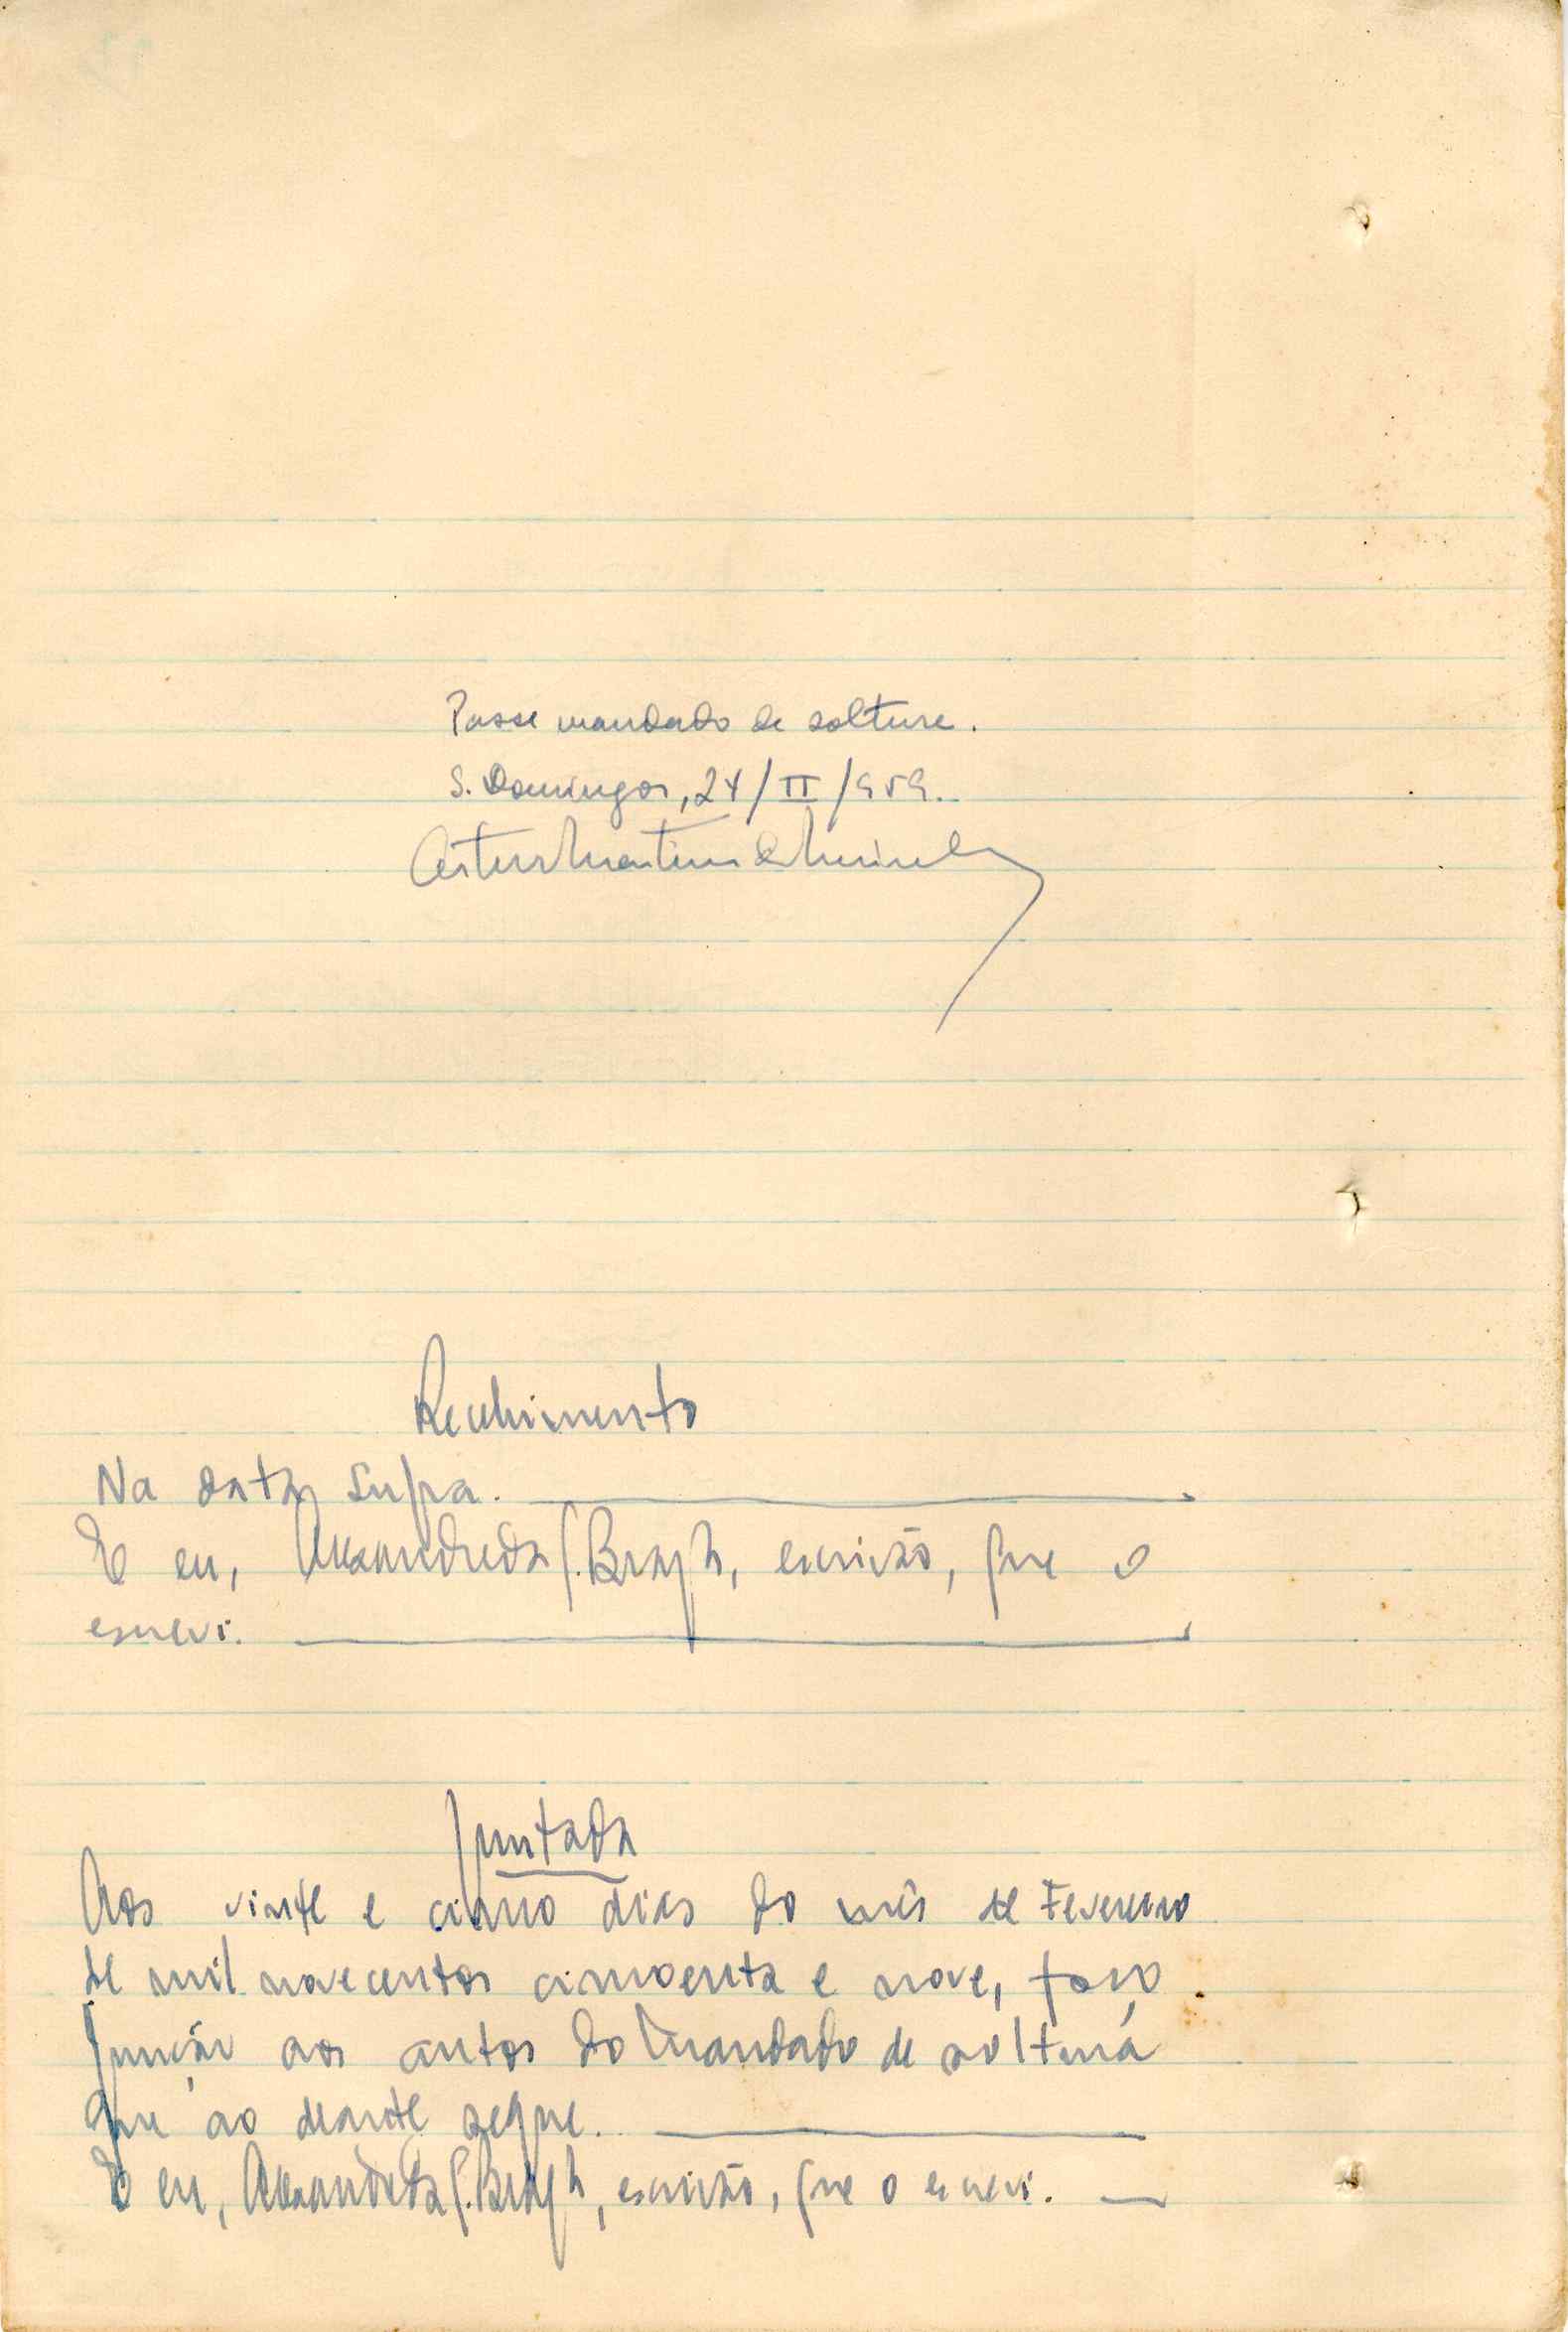 Passe mandado de solture.
S. Domingos, 24/II/959.
Recebimento
Na data supra.
E eu, Alexandre da S. Braga, escrivão, que o
escrevi.
Juntada
Aos vinte e cinco dias do mês de Fevereiro
de mil novecentos cincoenta e nove, faço
junção aos autos do Mandado de soltura
que ao deante segue.
E eu, Alexandre da S. Braga, escrivão, que o escrevi.